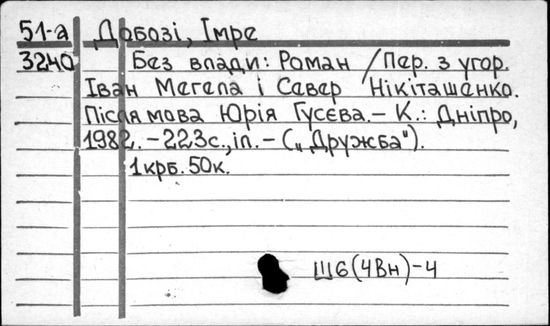 51-а Добозі, Імре
3240 Без влади: Роман / Пер. з угор.
Іван Мегела і Север Нікіташенко.
Післямова Юрія Гусєва. – К.: Дніпро,
1982. – 223с., іл. – („Дружба").
1крб. 50к.
Ш6(4Вн)-4